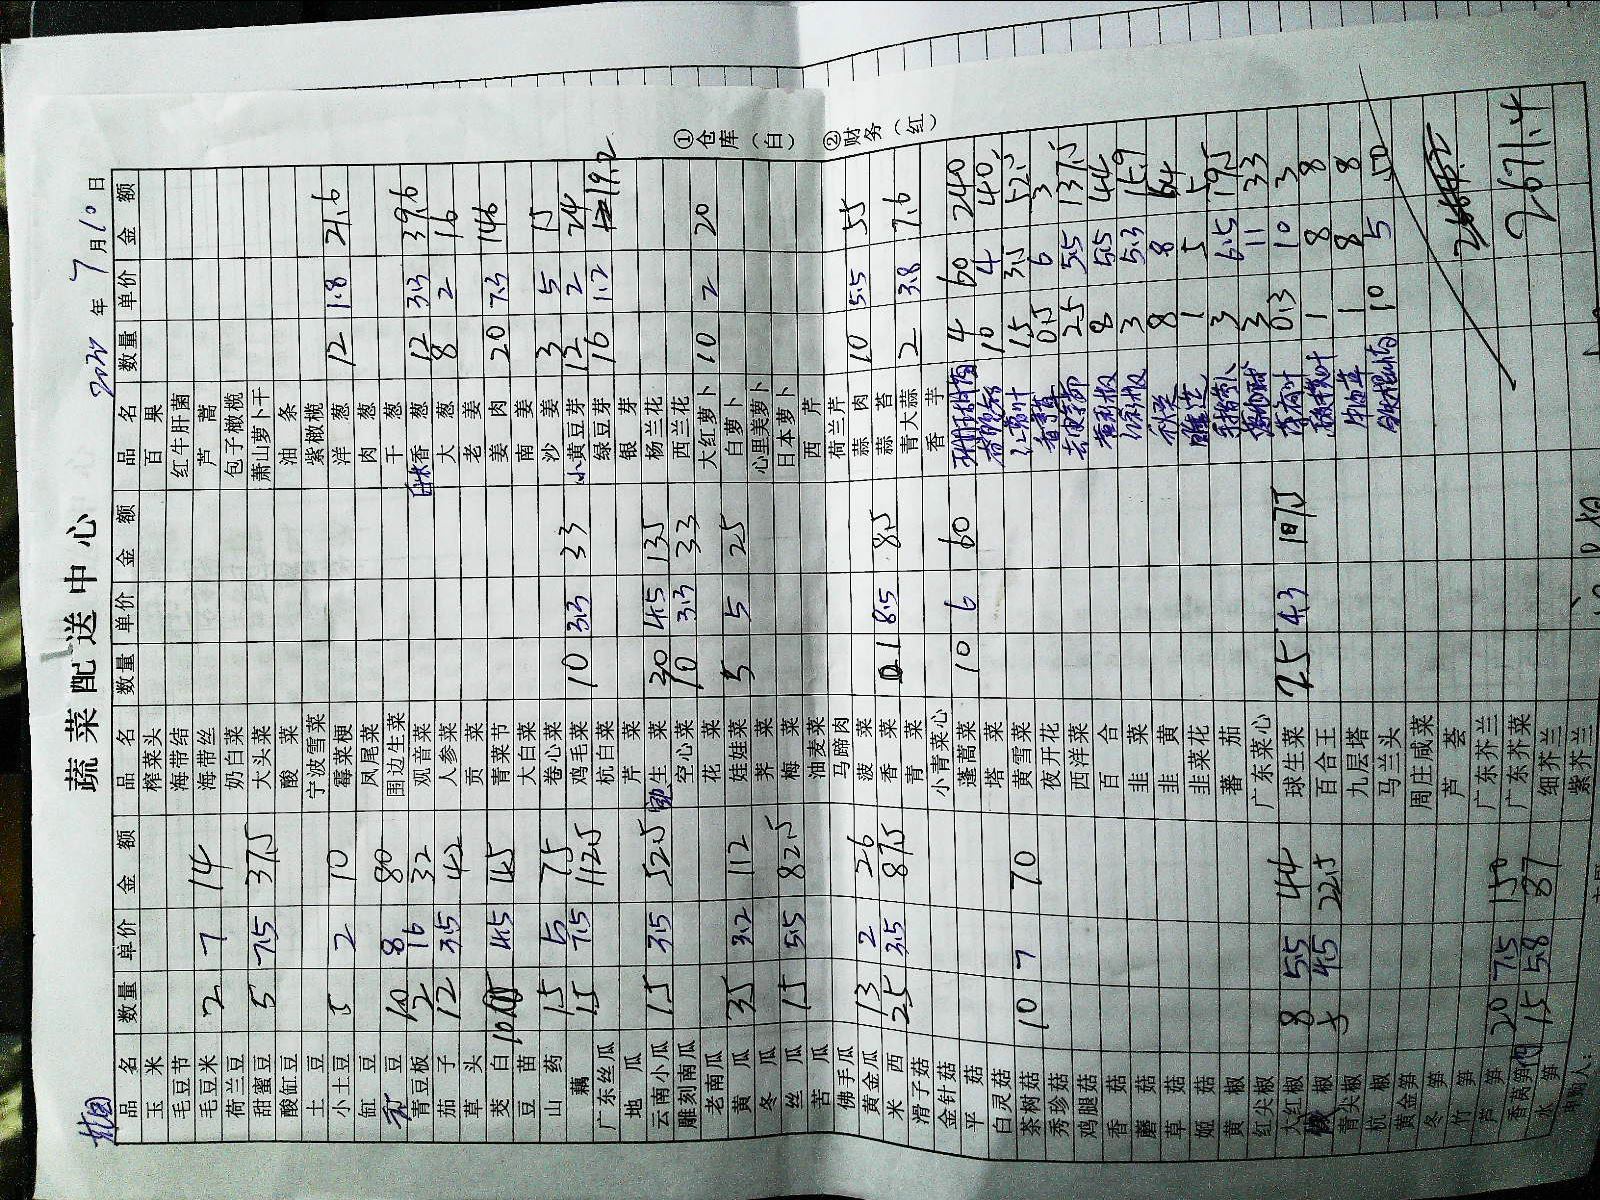 蔬菜配送中心
年 7 月 10 日
品名 数量 单价 金额 品名 数量 单价 金额 品名 数量 单价 金额
玉米 榨菜头 百果
毛豆节 海带结 红牛肝菌
毛豆米 2 7 14 海带丝 芦蒿
荷兰豆 奶白菜 包子橄榄
甜蜜豆 5 7.5 37.5 大头菜 萧山萝卜干
酸缸豆 酸菜 油条
土豆 宁波雪菜 紫橄榄
小土豆 5 2 10 霉菜梗 洋葱 12 1.8 21.6
缸豆 凤尾菜 肉葱
豆 10 8 80 围边生菜 干葱
青豆板 12 16 32 观音菜 香葱 12 3.3 39.6
茄子 12 3.5 42 人参菜 大葱 8 2 16
草头 贡菜 老姜
茭白 10 4.5 45 青菜节 姜肉 20 7.3 146
豆苗 大白菜 南姜
山药 15 5 75 卷心菜 沙姜 3 5 15
藕 15 7.5 112.5 鸡毛菜 10 3.3 33 小黄豆芽 12 2 24
广东丝瓜 杭白菜 绿豆芽 16 1.2 19.2
地瓜 芹菜 银芽
云南小瓜 15 3.5 52.5 生菜 30 4.5 135 杨兰花
雕刻南瓜 空心菜 10 3.3 33 西兰花
老南瓜 花菜 大红萝卜 10 2 20
黄瓜 35 3.2 112 娃娃菜 5 5 25 白萝卜
冬瓜 荠菜 心里美萝卜
丝瓜 15 5.5 82.5 梅菜 日本萝卜
苦瓜 油麦菜 西芹
佛手瓜 马蹄肉 荷兰芹
黄金瓜 13 2 26 菠菜 蒜肉 10 5.5 55
米西 25 3.5 87.5 香菜 1 8.5 8.5 蒜苔
滑子菇 青菜 青大蒜 2 3.8 7.6
金针菇 小青菜心 香芋
平菇 蓬蒿菜 10 6 60 4 60 240
白灵菇 塔菜 10 4 40
茶树菇 10 7 70 黄雪菜 15 3.5 52.5
秀珍菇 夜开花 0.5 6 3
鸡腿菇 西洋菜 25 5.5 137.5
香菇 百合 黄甜椒 8 5.5 44
蘑菇 韭菜 红甜椒 3 5.3 15.9
草菇 韭黄 8 8 64
姬菇 韭菜花 1 5 5
黄椒 蕃茄 3 6.5 19.5
红尖椒 广东菜心 3 11 33
大红椒 8 5.5 44 球生菜 25 4.3 107.5 薄荷叶 0.3 10 3
椒 5 4.5 22.5 百合王 1 8 8
青尖椒 九层塔 1 8 8
杭椒 马兰头 10 5 50
黄金笋 周庄咸菜
冬笋 芦荟
竹笋
芦笋 20 7.5 150 广东芥兰
香莴笋 15 5.8 87 广东芥菜 2671.4
水笋 细芥兰
紫芥兰
①仓库（白）
②财务（红）